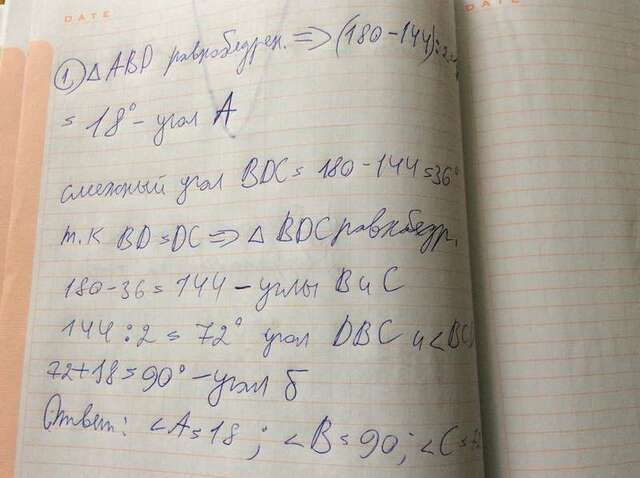 DATE
DATE
1. △ABD равнобедрен. => (180-144):2=
= 18° - угол А
смежный угол BDC = 180-144=36°
т.к BD=DC => △ BDC равнобедр.
180-36=144 - углы В и С
144:2=72° угол DBC и <BC
72+18=90° - угол б
Ответ: <A=18; <B=90; <C=